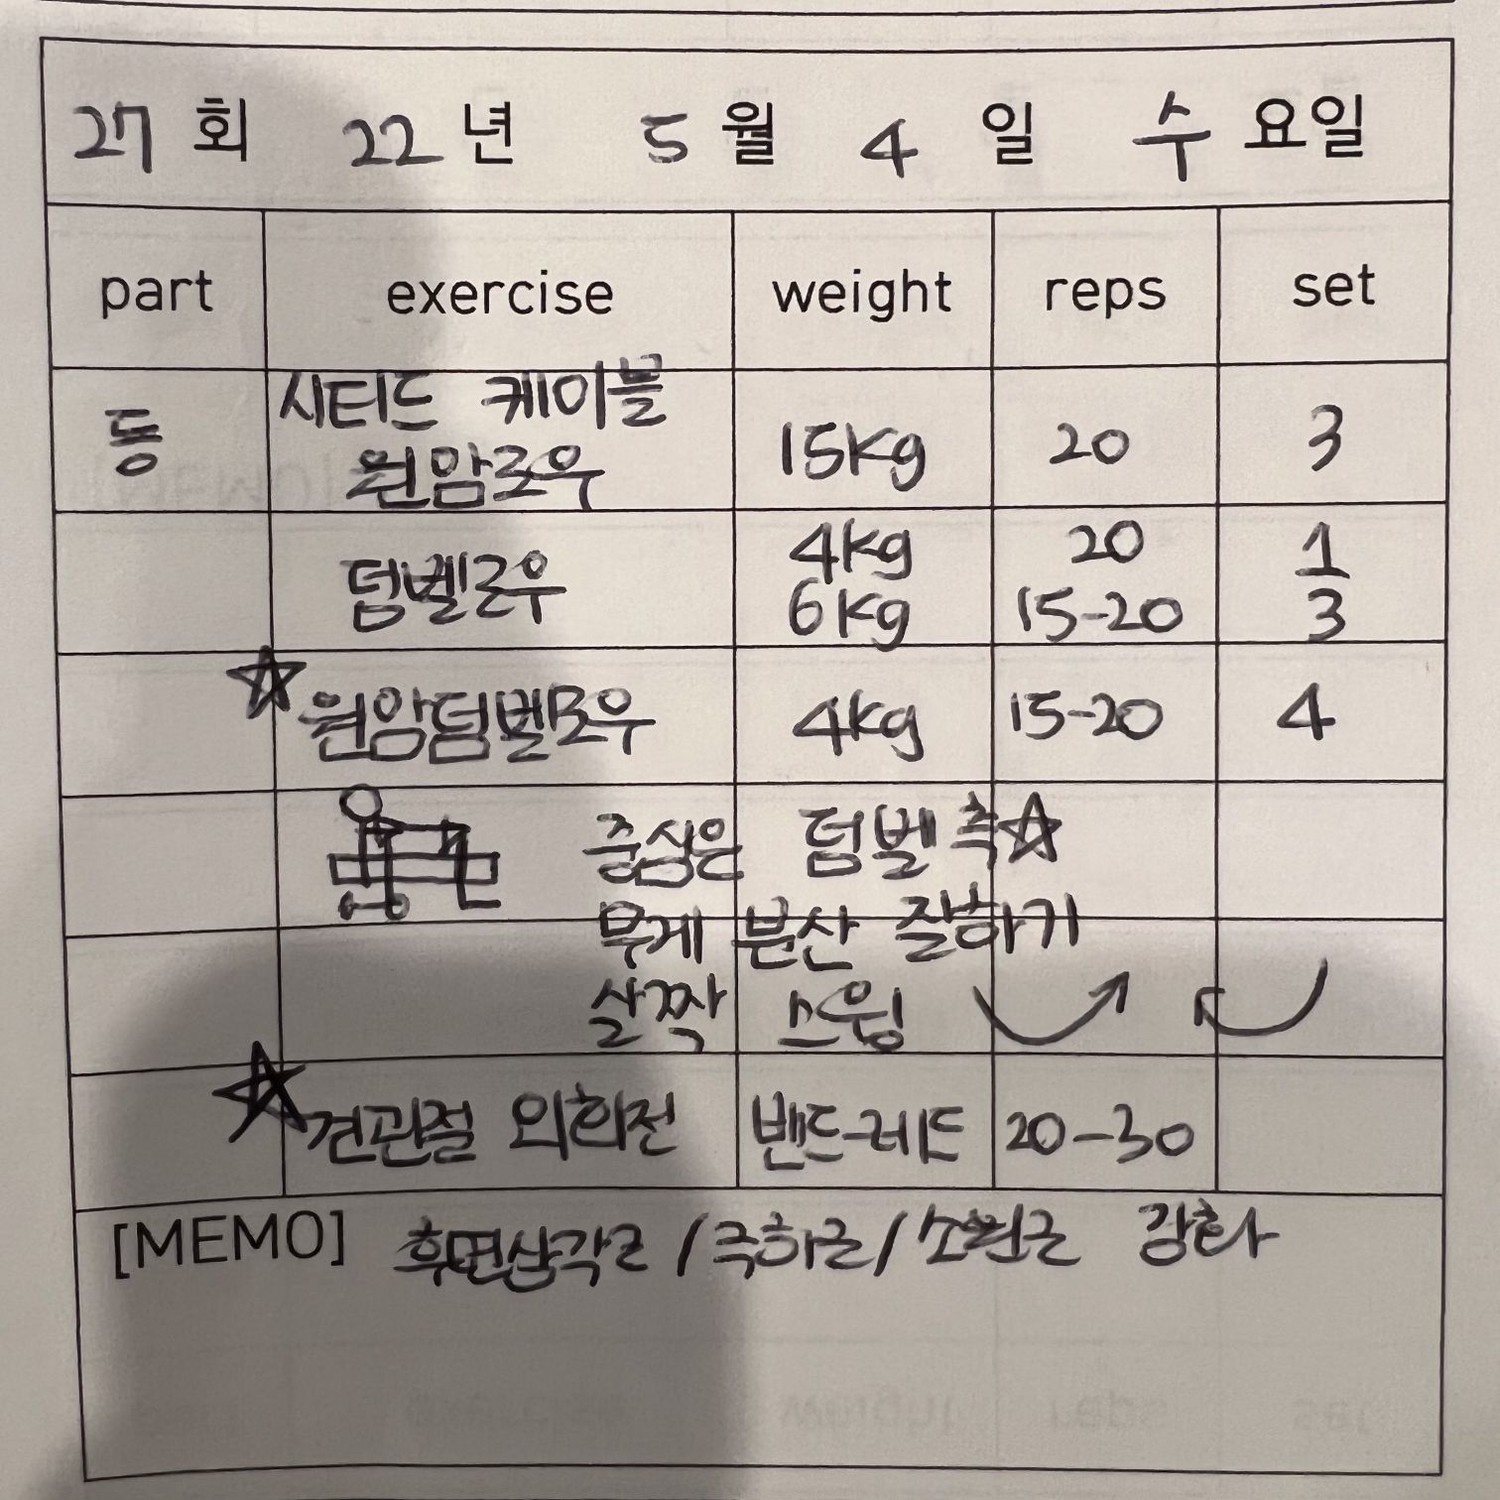 27 회 22 년 5 월 4 일 수 요일
part exercise weight reps set
등 시티드 케이블 원암로우 15kg 20 3
덤벨로우 4kg 20 1
6kg 15-20 3
☆ 원암덤벨로우 4kg 15-20 4
중심은 덤벨 측☆
무게 분산 잘하기
살짝 스윙
☆ 견관절 외회전 밴드-레드 20-30
[MEMO] 후면삼각근/극하근/소원근 강화